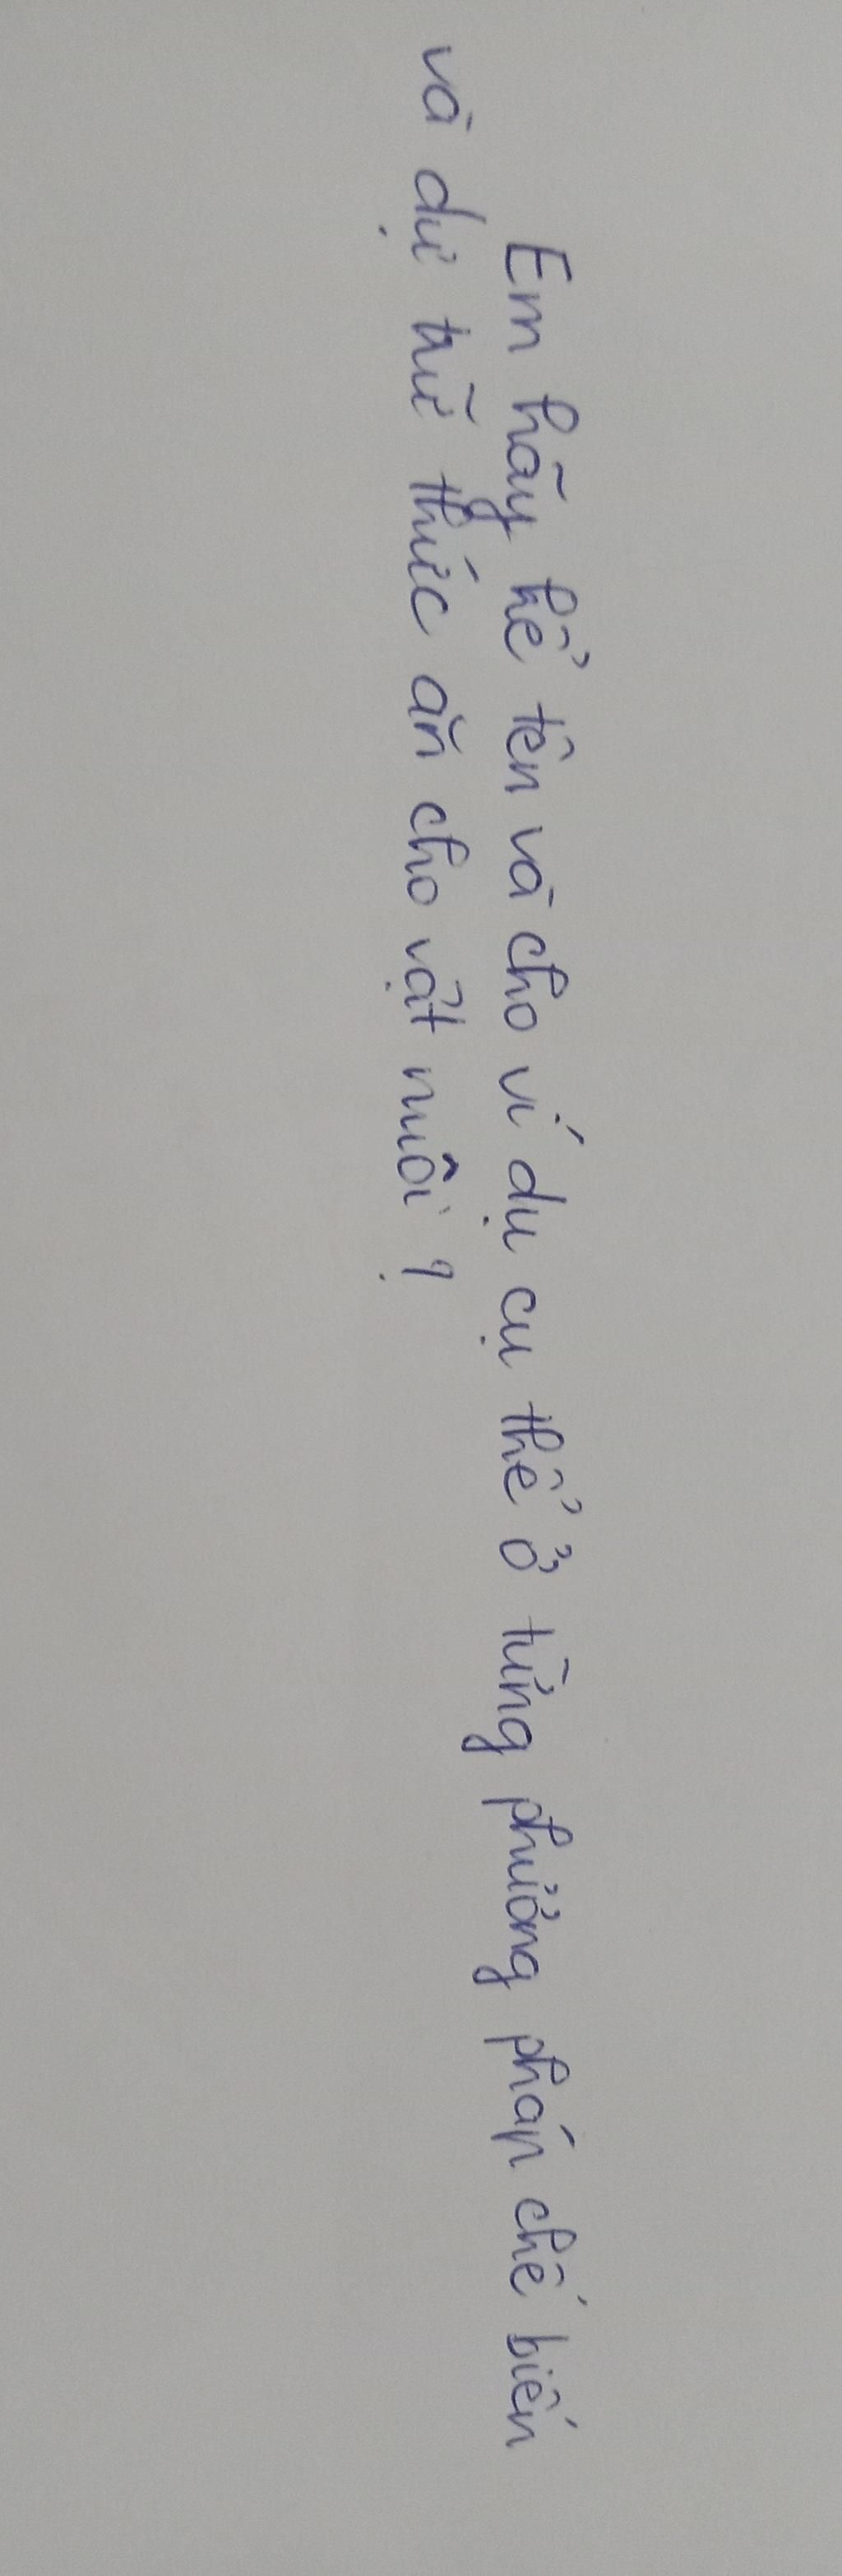 Em hãy kể tên và cho ví dụ cụ thể ở từng phương pháp chế biến
và dự trữ thức ăn cho vật nuôi?